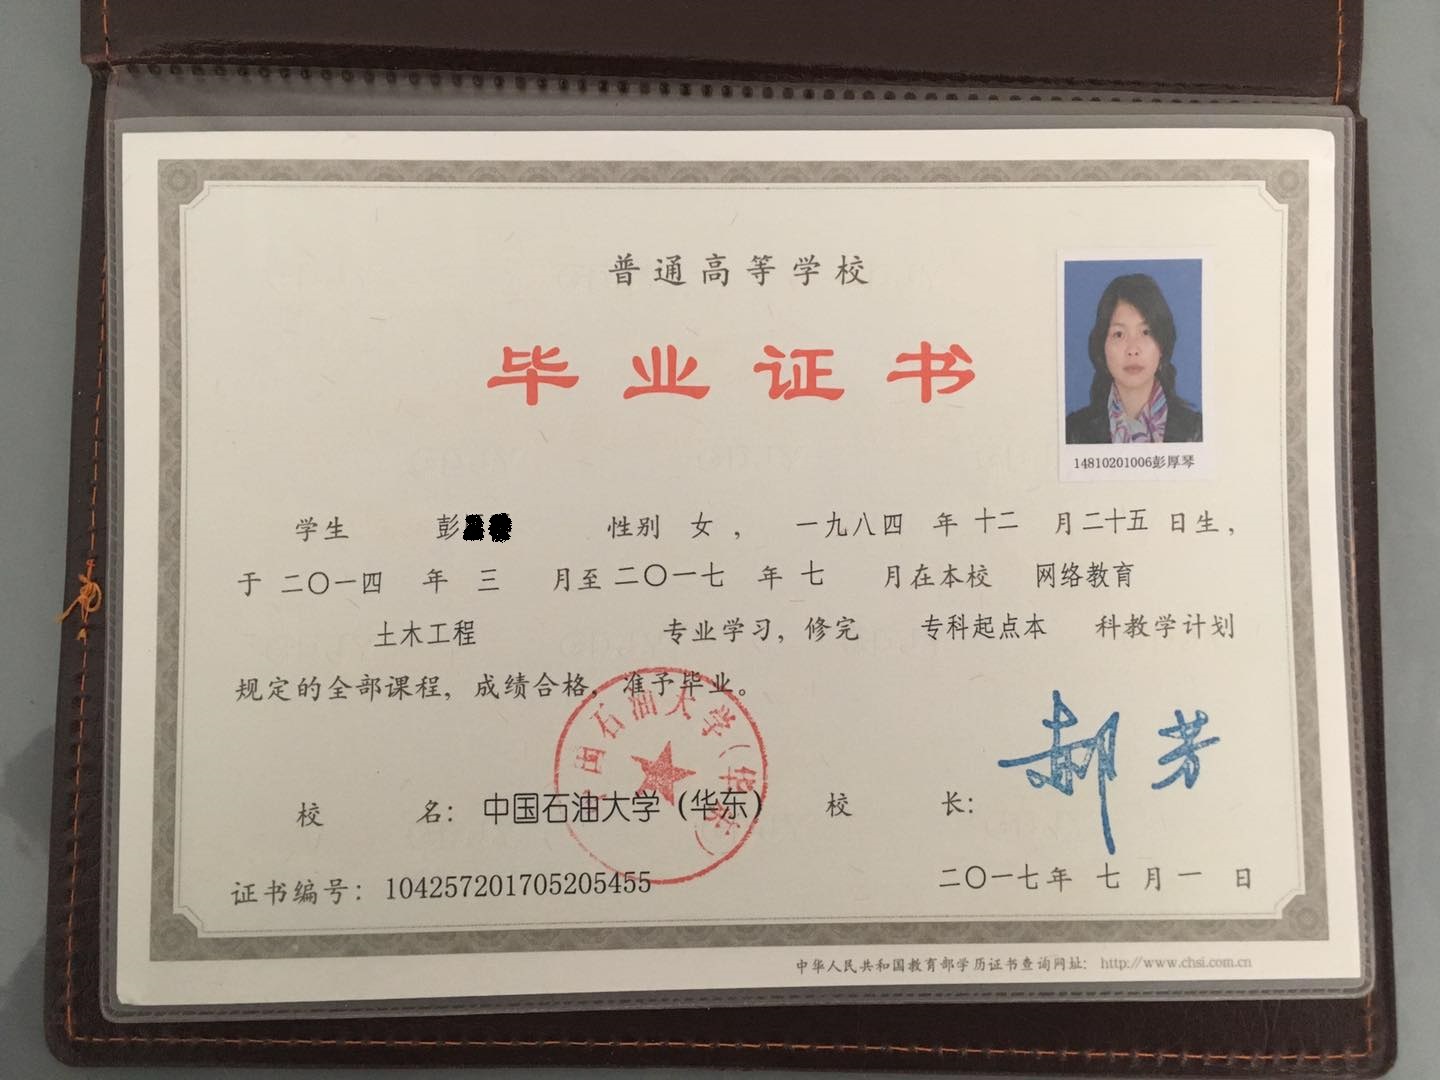 普通高等学校
毕业证书
14810201006彭厚琴
学生 彭 性别 女 ， 一九八四 年 十二 月二十五 日生，
于 二〇一四 年 三 月至 二〇一七 年 七 月在本校 网络教育
土木工程 专业学习，修完 专科起点本 科教学计划
规定的全部课程，成绩合格，准予毕业。
中国石油大学（华东）
校 名：中国石油大学（华东） 校 长：郝芳
证书编号：104257201705205455 二〇一七年 七 月一 日
中华人民共和国教育部学历证书查询网址：http://www.chsi.com.cn